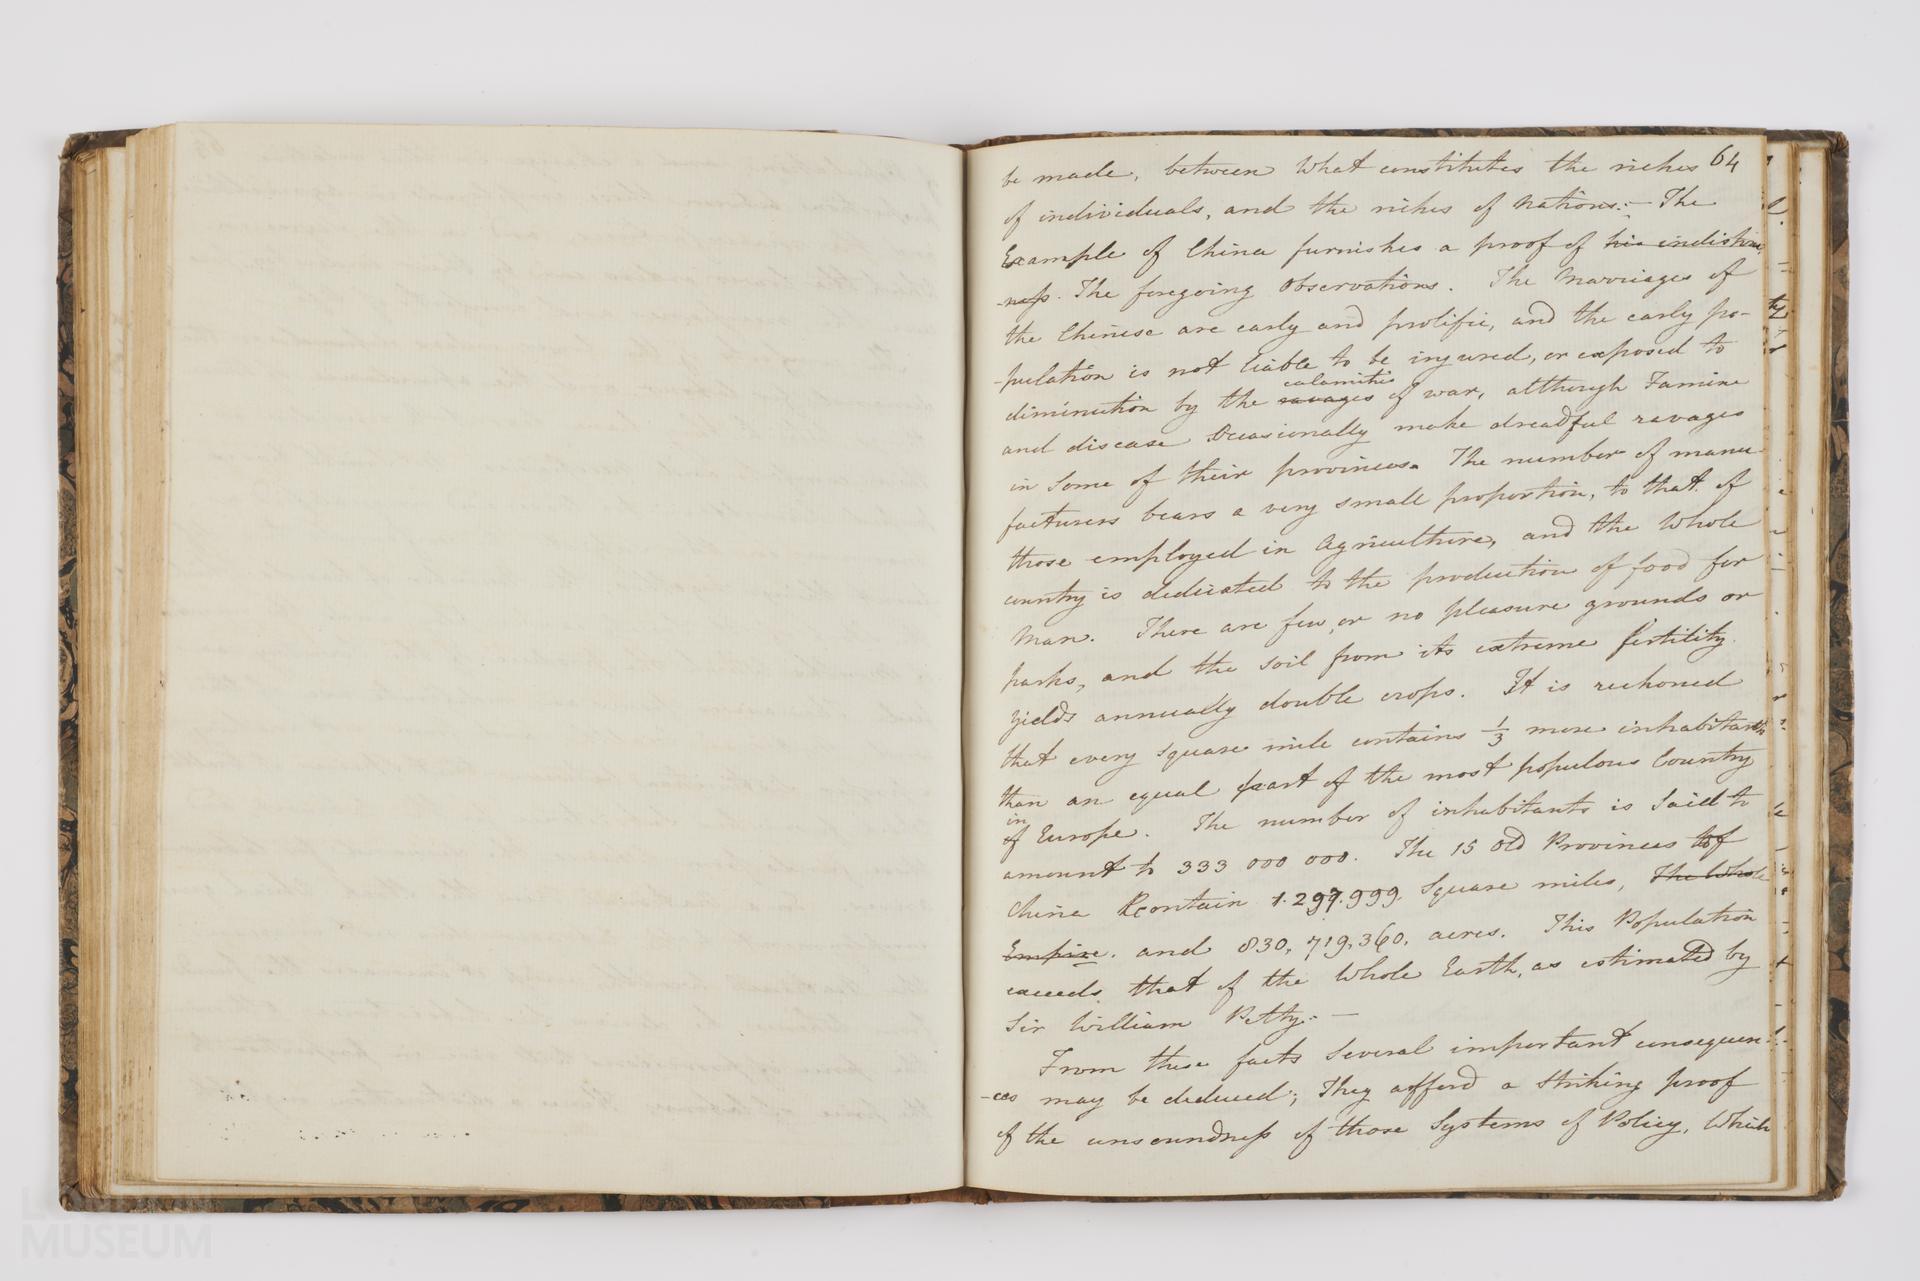 64
be made, between what constitutes the riches
of individuals, and the riches of Nations:- The
Example of China furnishes a proof of his indistinc
-ness. The foregoing Observations. The Marriages of
the Chinese are early and prolific, and the early po-
-pulation is not liable to be injured, or exposed to
calamities
diminution by the ravages of war, although Famine
and disease Occasionally make dreadful ravages
in Some of their provinces. The number of manu
facturers bears a very small proportion, to that of
those employed in Agriculture, and the Whole
country is dedicated to the production of food for
Man. There are few, or no pleasure grounds or
parks, and the soil from its extreme fertility
yields annually double crops. It is reckoned
that every Square mile contains 1/3 more inhabitants
than an equal part of the most populous Country
in
of Europe. The number of inhabitants is Said to
amount to 333 000 000. The 15 Old Provinces of
China Contain 1.297.999. Square miles, The Whole
Empire. and 830,719,360, acres. This Population
exceeds that of the Whole Earth, as estimated by
Sir William Petty.-
From these facts Several important consequen
-ces may be deduced; They afford a Striking proof
of the unsoundness of those Systems of Policy, Which
MUSEUM